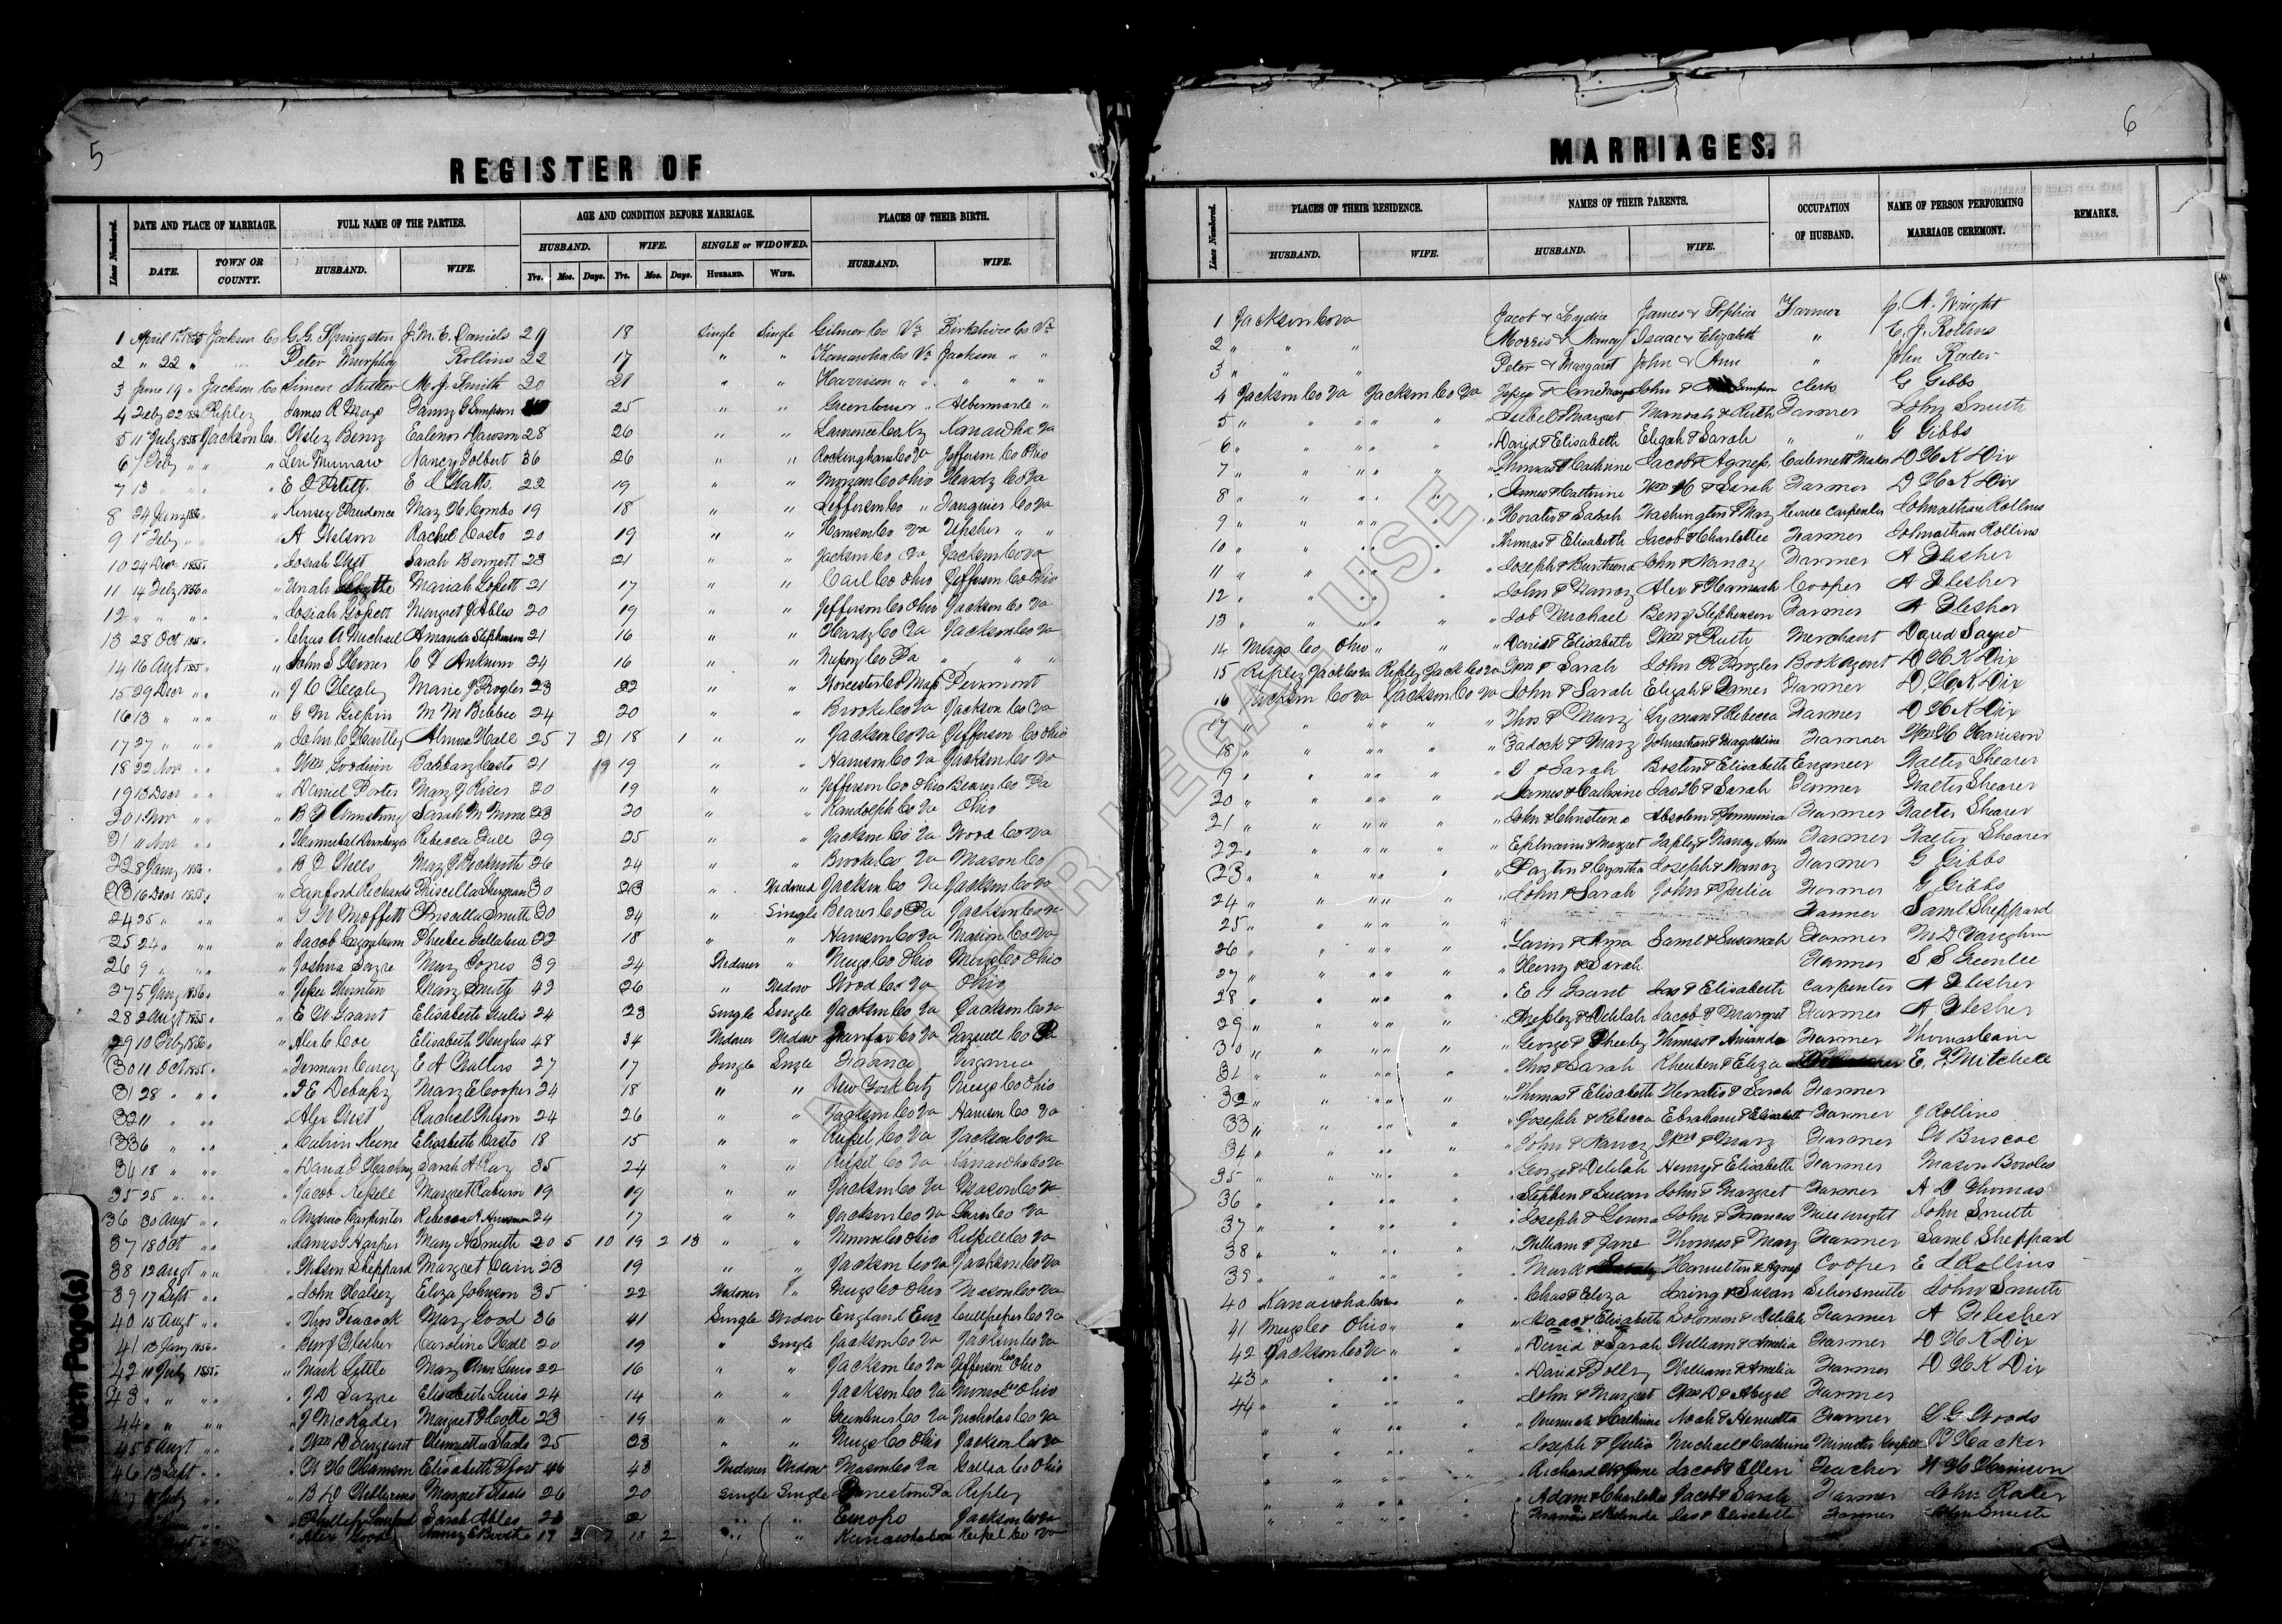 5
REGISTER OF
Lines Numbered. DATE AND PLACE OF MARRIAGE. FULL NAME OF THE PARTIES. AGE AND CONDITION BEFORE MARRIAGE. PLACES OF THEIR BIRTH.
DATE. TOWN OR COUNTY. HUSBAND. WIFE. HUSBAND. WIFE. SINGLE or WIDOWED. HUSBAND. WIFE.
Yrs. Mos. Days. Yrs. Mos. Days. HUSBAND. WIFE.
1 April 1st 1855 Jackson Co G.G. Springston J.M.E. Daniels 29 18 Single Single Gilmer Co Va
2 " 22 " Peter Murphy Rollins 22 17 " " Kanawha Co Va Jackson " "
3 June 19 " Jackson Co Simon Shutter M.J. Smith 20 21 " " Harrison " " " " "
4 Feby 22 1856 Ripley James R Mays Fanny G Simpson 25 " " Greenbrier " Albermarle "
5 11 July 1855 Jackson Co. Wesley Berry Ealenor Dawson 28 26 " " Lawrence Co Ky Kanawha Va
6 7 Feby " " " Levi Mumaw Nancy Tolbert 36 26 " " Rockingham Co Va Jefferson Co Ohio
7 13 " " " " E L Watts 22 19 " " Morgan Co Ohio Hardy Co Va
8 24 Jany 1856 " " Kinsey Prudence Mary W Combs 19 18 " " Jefferson Co " Fauquier Co Va
9 1st Feby " " " A Wilson Rachel Casto 20 19 " " Harrison Co Va Upsher " "
10 24 Decr 1855 " " Josiah West Sarah Bennett 23 21 " " Jackson Co Va Jackson Co Va
11 14 Feby 1856 " " Uriah Mariah Gossett 21 17 " " Co Ohio Jefferson Co Ohio
12 " " " " " Josiah Gossett Margret J Ables 20 19 " " Jefferson Co Ohio Jackson Co Va
13 28 Oct 1855 " " A Michael Amanda Stephenson 21 16 " " Hardy Co Va Jackson Co Va
14 16 Augt 1855 " " John S C F Ankrum 24 16 " " Co Pa " " "
15 29 Decr " " " J C Marie J Progler 23 22 " " Worcester Co Mass Piermont
16 13 " " " " G M Gilpin M M Bibbee 24 20 " " Brooke Co Va Jackson Co Va
17 27 " " " " John C Hartley Almira Hall 25 7 21 18 1 " " Jackson Co Va Jefferson Co Ohio
18 22 Nov " " " Wm Goodwin Barbary Casto 21 19 19 " " Harrison Co Va Jackson Co Va
19 13 Decr " " " Daniel Porter Mary J Kiser 20 19 " " Jefferson Co Ohio Beaver Co Pa
20 1 Nov " " " B F Armstrong Sarah M Moore 23 20 " " Randolph Co Va Ohio
21 11 Nov " " " Hannibal Rebecca Full 29 25 " " Jackson Co Va Wood Co Va
22 8 Jany 1856 " " B D Wells Mary J 26 24 " " Brooke Co Va Mason Co
23 16 Decr 1855 " " Sanford Richards Priscilla 30 23 " Widowed Jackson Co Va Jackson Co Va
24 25 " " " " G W Moffett Priscilla Smith 30 24 " Single Beaver Co Pa Jackson Co Va
25 24 " " " " Jacob Phebee Gallahue 18 " " Harrison Co Va Marion Co Va
26 9 " " " " Joshua Sayre Mary 39 24 Widower " Meigs Co Ohio Meigs Co Ohio
27 5 Jany 1856 " " Jesse Thornton Mary Smith 43 26 " Widow Wood Co Va Ohio
28 2 Augt 1855 " " E W Grant Elisabeth 24 23 Single Single Jackson Co Va Jackson Co Va
29 10 Feby 1856 " " Alex C Coe Elisabeth Hughes 48 34 Widower Widow Co Va Tazwell Co
30 11 Oct 1855 " " Carey E A Walters 27 17 Single Single France Virginia
31 28 " " " " Mary E Cooper 24 18 " " New York City Meigs Co Ohio
32 11 " " " " Alex West Rachel Wilson 24 26 " " Jackson Co Va Harrison Co Va
33 6 " " " " Calvin Kiene Elizabeth Casto 18 15 " " Russel Co Va Jackson Co Va
34 18 " " " " David Sarah A Ray 35 24 " " Kanawha Co Va
35 25 " " " " Jacob Margret Raburn 19 19 " " Jackson Co Va Mason Co Va
36 30 Augt " " " Andrew Carpenter Rebecca A 24 17 " " Jackson Co Va Co Va
37 18 Oct " " " James T Harper Mary A Smith 20 5 10 19 2 13 " " Monroe Co Ohio Co Va
38 12 Augt " " " Wilson Sheppard Margret Cain 23 19 " " Jackson Co Va Jackson Co Va
39 17 Sept " " " John Halsey Eliza Johnson 35 22 Widower " Meigs Co Ohio Mason Co Va
40 15 Augt " " " Thos Peacock Mary Good 36 41 Single Widow England Culpeper Co Va
41 13 Jany 1856 " " Benj Flesher Caroline Hall 20 19 " Single Jackson Co Va Jackson Co Va
42 11 July 1855 " " Mark Little Mary Ann Lewis 22 16 " " Jackson Co Va Jefferson Co Ohio
43 " " " " " J D Sayre Elisabeth Lewis 24 14 " " Jackson Co Va Monroe Co Ohio
44 " " " " " Margret 23 19 " " Greenbrier Co Va Nicholas Co Va
45 5 Augt " " " Wm D Sargeant Henrietta Staats 25 23 " " Meigs Co Ohio Jackson Co Va
46 13 Sept " " " W H Harrison Elisabeth 46 43 Widower Widow Mason Co Va Gallia Co Ohio
July " " " B D Williams Margret Staats 26 20 Single Single Ripley
Sarah Ables " " Europe Jackson Co Va
Alex Good Nancy E 19 18 2 " " Kanawha
Torn Page(s)
6
MARRIAGES.
Lines Numbered. PLACES OF THEIR RESIDENCE. NAMES OF THEIR PARENTS. OCCUPATION OF HUSBAND. NAME OF PERSON PERFORMING MARRIAGE CEREMONY. REMARKS.
HUSBAND. WIFE. HUSBAND. WIFE.
1 Jackson Co Va Jacob & Lydia James & Sophia Farmer J. A. Wright
2 " " " Morris & Nancy Isaac & Elizabeth " E. J. Rollins
3 " " " Peter & Margaret John & Ann " John Rader
4 Jackson Co Va Jackson Co Va John & Simpson Clerk G Gibbs
5 " " " " " & Margret Mannah & Ruth Farmer John Smith
6 " " " " " David & Elisabeth Elijah & Sarah " " G Gibbs
7 " " " " " Thomas & Catherine Jacob & Agness Cabernett Maker D H K Dix
8 " " " " " James & Catherine Wm H & Sarah Farmer D H K Dix
9 " " " " " Horatio & Sarah Washington & Mary House Carpenter Johnathan Rollins
10 " " " " " Thomas & Elisabeth Jacob & Charlottee Farmer Johnathan Rollins
11 " " " " " Joseph & John & Nancy Farmer A Flesher
12 " " " " " John & Nancy Alex & Hannah Cooper A Flesher
13 " " " " " Job Michael Benj Stephenson Farmer A Flesher
14 Meigs Co Ohio " " " David & Elisabeth Wm & Ruth Merchant David Sayre
15 Ripley Jack Co Va Ripley Jack Co Va Wm & Sarah John R Progler Book Agent D H K Dix
16 Jackson Co Va Jackson Co Va John & Sarah Elijah & James Farmer D. H K Dix
17 " " " " " Thos & Mary Lyman & Rebecca Farmer D H K Dix
18 " " " " " Zadock & Mary Johnathan & Magdaline Farmer Wm H Harrison
19 " " " " " & Sarah Boston & Elisabeth Engineer Walter Shearer
20 " " " " " James & Catherine Jas H & Sarah Farmer Walter Shearer
21 " " " " " John & Christena Absolem & Jemmima Farmer Walter Shearer
22 " " " " " Ephraim & Margret Tapley & Nancy Ann Farmer Walter Shearer
23 " " " " " Payton & Cyntha Joseph & Nancy Farmer G Gibbs
24 " " " " " John & Sarah John & Julia Farmer G Gibbs
25 " " " " " Farmer Saml Sheppard
26 " " " " " & Anna Saml & Susanah Farmer M D Vaughn
27 " " " " " Henry & Sarah Farmer S S Greenlee
28 " " " " " E G Grant Jas & Elisabeth Carpenter A Flesher
29 " " " " " & Delilah Jacob & Margret Farmer A Flesher
30 " " " " " George & Thomas & Amanda Farmer Thomas Cain
31 " " " " " Thos & Sarah Rheuben & Eliza E. F Mitchell
32 " " " " " Thomas & Elisabeth Horatio & Sarah Farmer
33 " " " " " Joseph & Rebecca Ebraham & Elisabeth Farmer J Rollins
34 " " " " " John & Nancy Wm & Mary Farmer W Briscoe
35 " " " " " George & Delilah Henry & Elisabeth Farmer Mason Bowles
36 " " " " " Stephen & Susan John & Margret Farmer A D Thomas
37 " " " " " Joseph & John & Frances Mill wright John Smith
38 " " " " " William & Jane Thomas & Mary Farmer Saml Sheppard
39 " " " " " Mark Hamilton & Agness Cooper E L Rollins
40 Kanawha " " Chas & Eliza & Susan Silversmith John Smith
41 Meigs Co Ohio " " " Isaac & Elisabeth Solomon & Delilah Farmer A Flesher
42 Jackson Co Va " " " David & Sarah William & Amelia Farmer D H K Dix
43 " " " " " David & Dolly William & Amelia Farmer D H K Dix
44 " " " " " John & Margret Wm D & Abigal Farmer
" " " " " & Catherine Noah & Henrietta Farmer L G Woods
" " " " " Joseph & Julia Michael & Catherine Minister Gospel Hacker
" " " " " Richard Jacob & Ellen Teacher W H Harrison
" " " " " Adam & Charlotte Jacob & Sarah Farmer John Rader
" " " " " Francis & Jas & Elisabeth Farmer John Smith
NOT FOR LEGAL USE